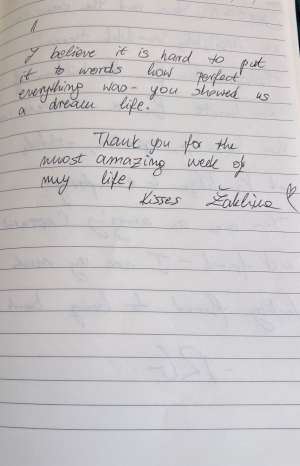 I believe it is hard to put
it to words how perfect
everything was - you showed us
a dream life.
Thank you for the
most amazing week of
my life,
Kisses Žaklina